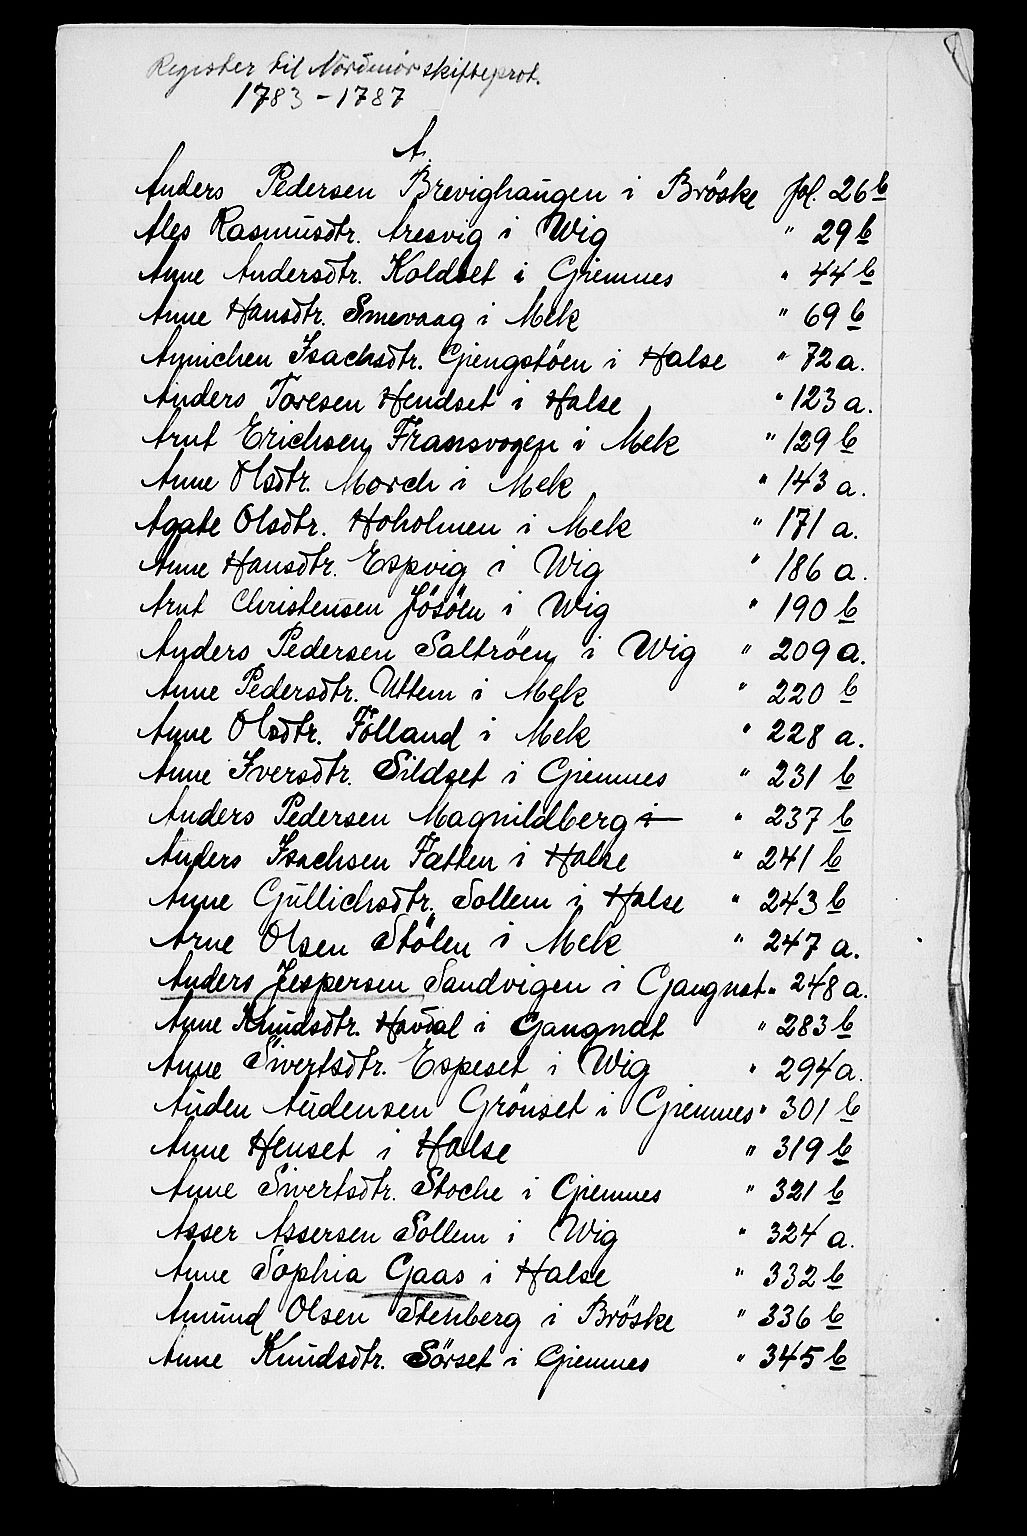 Register til Nordmør skifteprot.
1783-1787
A.
Anders Pedersen Brevighaugen i Bröske fol. 26 b
Ales Rasmusdtr. Aresvig i Wig " 29 b
Anne Andersdtr. Koldset i Giemnes " 44 b
Anne Hansdtr. Smevaag i Mek " 69 b
Annichen Isachsdtr. Giengstöen i Halse " 72 a.
Anders Toresen Hendset i Halse " 123 a.
Arnt Erichsen Fransvogen i Mek " 129 b
Anne Olsdtr. Morch i Mek " 143 a.
Agate Olsdtr. Hoholmen i Mek " 171 a.
Anne Hansdtr. Espvig i Wig " 186 a.
Arnt Christensen Jösöen i Wig " 190 b
Anders Pedersen Saltröen i Wig " 209 a.
Anne Pedersdtr. Uttem i Mek " 220 b
Anne Olsdtr. Folland i Mek " 228 a.
Anne Iversdtr. Sildset i Giemnes " 231 b
Anders Pedersen Magnildberg i " 237 b
Anders Isachsen Fætten i Halse " 241 b
Anne Gullichsdtr. Sollem i Halse " 243 b
Arne Olsen Stölen i Mek " 247 a.
Anders Jespersen Sandvigen i Gaugnat " 248 a.
Anne Knudsdtr. Havdal i Gaugnat " 283 b
Anne Sivertsdtr. Espeset i Wig " 294 a.
Auden Audensen Grönset i Giemnes " 301 b
Anne Henset i Halse " 319 b
Anne Sivertsdtr. Stoche i Giemnes " 321 b
Asser Assersen Sollem i Wig " 324 a.
Anne Sophia Gaas i Halse " 332 b
Amund Olsen Stenberg i Bröske " 336 b
Anne Knudsdtr. Sörset i Giemnes " 345 b